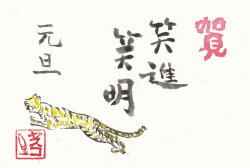 賀
笑進
笑明
元旦